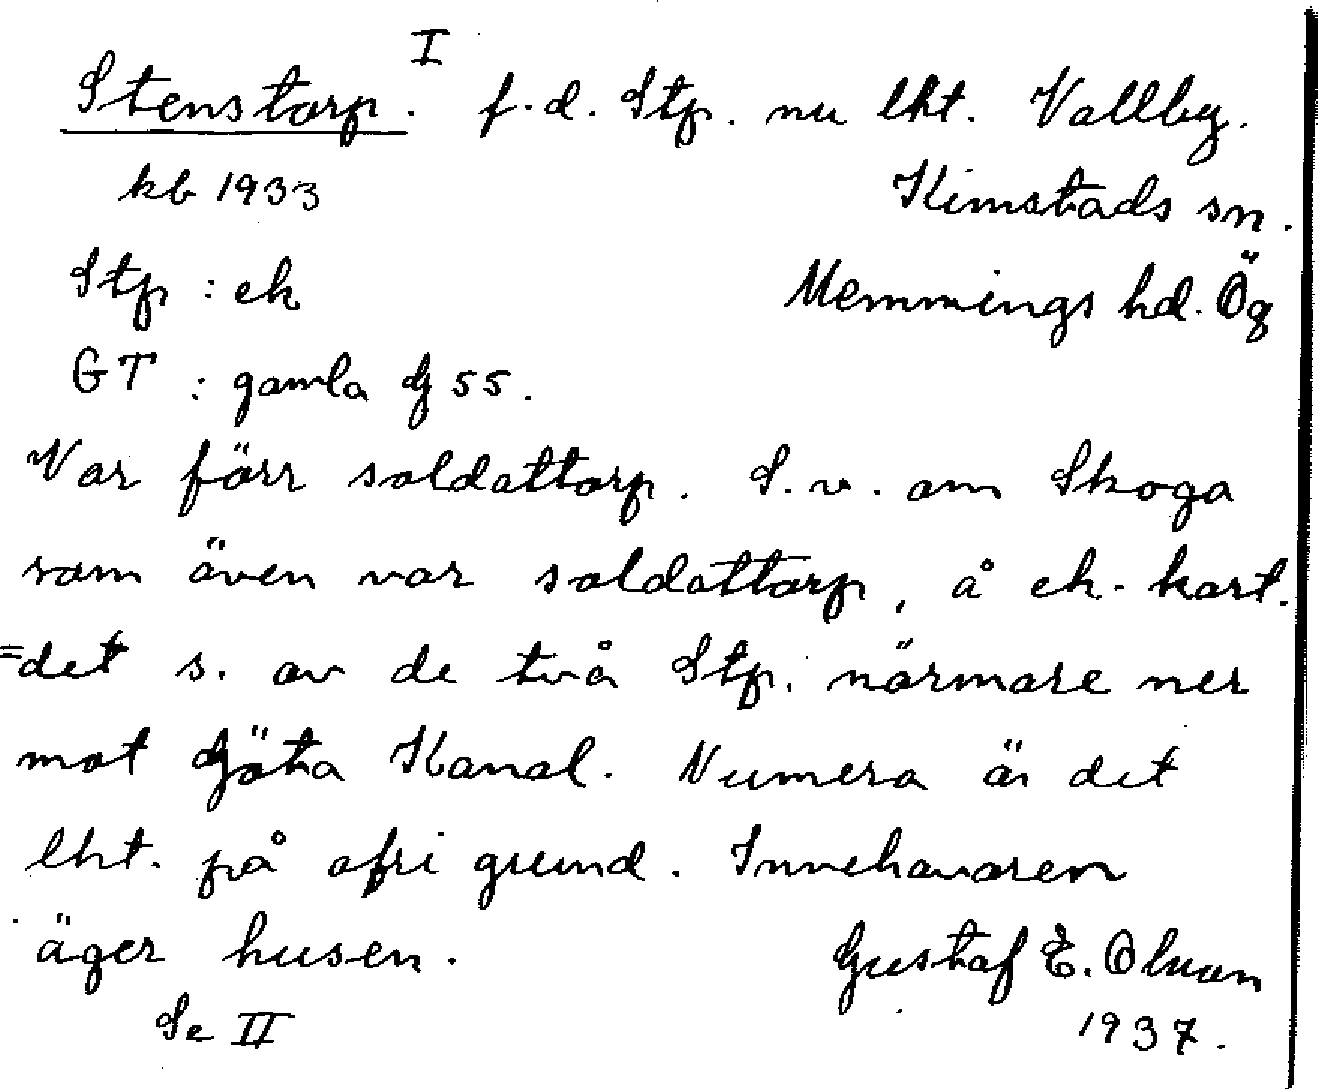 I
Stenstorp. f.d. Stp. nu lht. Vallby.
kb 1933 Kimstads sn.
Stp : ek Memmings hd. Ög
GT : gamla G 55.
Var förr soldattorp. S.v. om Skoga
som även var soldattorp, å ek. kart.
=det s. av de två Stp. närmare ner
mot Göta Kanal. Numera är det
lht. på ofri grund. Innehavaren
äger husen. Gustaf E. Olson
Se II 1937.